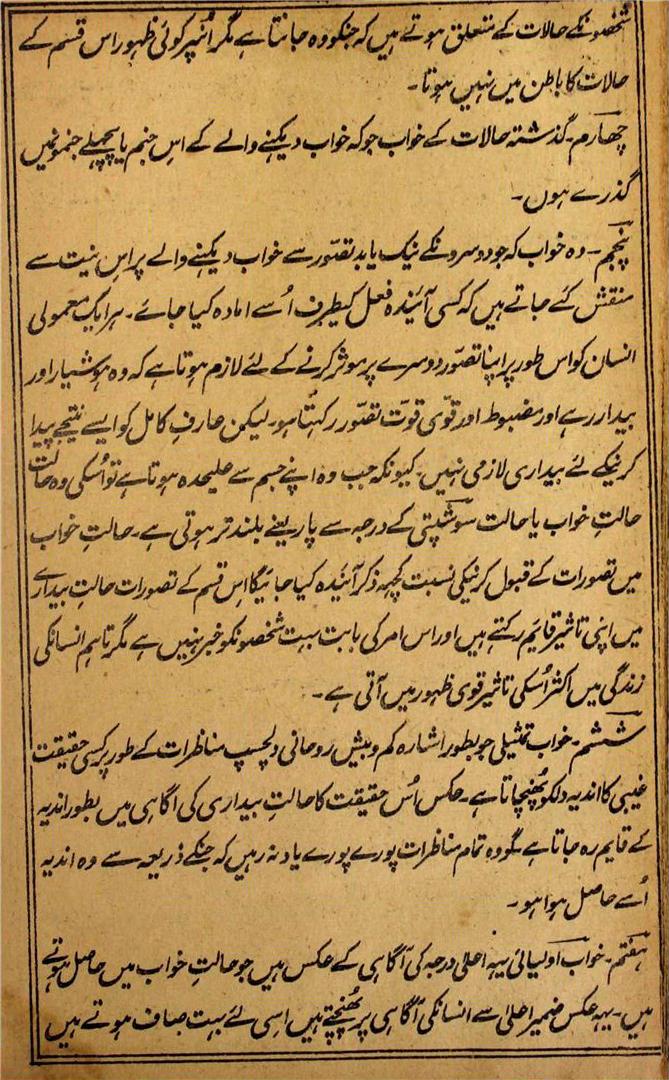 شخصونکے حالات کے متعلق ہوتے ہیں کہ جنکو وہ جانتا ہے مگر اُنپر کوئی ظہور اس قسم کے
حالات کا باطن میں نہیں ہوتا۔
چھارم۔ گذشتہ حالات کے خواب جو کہ خواب دیکہنے والے کے اس جنم یا پچہلے جنمونمیں
گذرے ہوں۔
پنجم۔ وہ خواب کہ جو دوسرونکے نیک یا بد تصوّر سے خواب دیکہنے والے پر اس نیت سے
منقش کئے جاتے ہیں کہ کسی آئیندہ فعل کیطرف اُسے امادہ کیا جائے۔ ہر ایک معمولی
انسان کو اس طور پر اپنا تصوّر دوسرے پر موثر کرنے کے لئے لازم ہوتا ہے کہ وہ ہوشیار اور
بیدار رہے اور مضبوط اور قوّی قوّت تصّور رکہتا ہو۔ لیکن عارفِ کامل کو ایسے نتیجے پیدا
کرنیکے لئے بیداری لازمی نہیں۔ کیونکہ جب وہ اپنے جسم سے علیحدہ ہوتا ہے تو اُسکی وہ حالت
حالتِ خواب یا حالت سوشپتی کے درجہ سے پاریعنے بلند تر ہوتی ہے۔ حالتِ خواب
میں تصورات کے قبول کرنیکی نسبت کچہہ ذکر آئیدہ کیا جائیگا اس قسم کے تصورات حالتِ بیداری
میں اپنی تاثیر قایم رکہتے ہیں اور اس امر کی بابت بہت شخصونکو خبر نہیں ہے مگر تاہم انسانکی
زندگی میں اکثر اُسکی تاثیر قوی ظہور میں آتی ہے۔
ششم۔ خواب تمثیلی جو بطور اشارہ کم و بیش روحانی دلچسپ مناظرات کے طور پر کسی حقیقت
غیبی کا اندیہ دلکو پُھنچاتا ہے۔ عکس اُس حقیقت کا حالتِ بیداری کی اگاہی میں بطور اندیہ
کے قایم رہ جاتا ہے گو وہ تمام مناظرات پورے پورے یاد نہ رہیں کہ جنکے ذریعہ سے وہ اندیہ
اُسے حاصل ہوا ہو۔
ہفتم۔ خواب اولیائی یہہ اعلیٰ درجہ کی آگاہی کے عکس ہیں جو حالتِ خواب میں حاصل ہوتے
ہیں۔ یہہ عکس ضمیر اعلیٰ سے انسانکی آگاہی پر پُھنچتے ہیں اسی لئے بہت صاف ہوتے ہیں